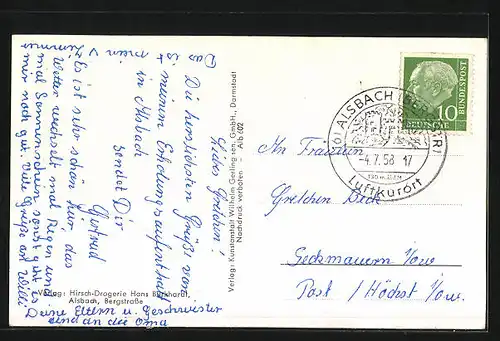 Das ist mein V
Zimmer
Liebes Gretchen!
Die herzlichsten Grüße von
meinem Erholungsaufenthalt
in Alsbach
sendet Dir
Gertrud
Es ist sehr schön hier, das
Wetter wechselt mal Regen und
mal Sonnenschein sonst geht es
mir noch gut. Viele Grüße an Willi
Deine Eltern u. Geschwister
und an die Oma
Verlag: Hirsch-Drogerie Hans Burkhardt,
Alsbach, Bergstraße
Verlag: Kunstanstalt Wilhelm Gerling sen. GmbH., Darmstadt
Nachdruck verboten - Alb 602
ALSBACH (BERGSTR)
-4.7.58 17
Luftkurort
DEUTSCHE
BUNDESPOST
10
An Fräulein
Gretchen Dick
Geckmauern i/Ow.
Post / Höchst i/Ow.